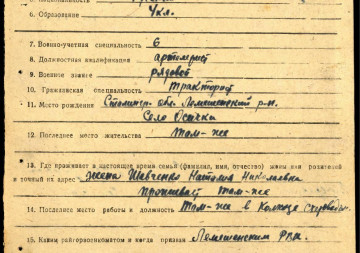 6. Образование 4 кл.
7. Военно-учетная специальность 6
8. Должностная квалификация артелерист
9. Военное звание рядовой
10. Гражданская специальность тракторист
11. Место рождения Сталингр. обл. Лемешенский р-н.
Село
12. Последнее место жительства там-же
13. Где проживает в настоящее время семья (фамилия, имя, отчество) жены или родителей
и точный их адрес жена Шевченко Наталия Николаевна
проживает там-же
14. Последнее место работы и должность там-же в Колхозе
15. Каким райгорвоенкоматом и когда призван Лемешенским РВК.